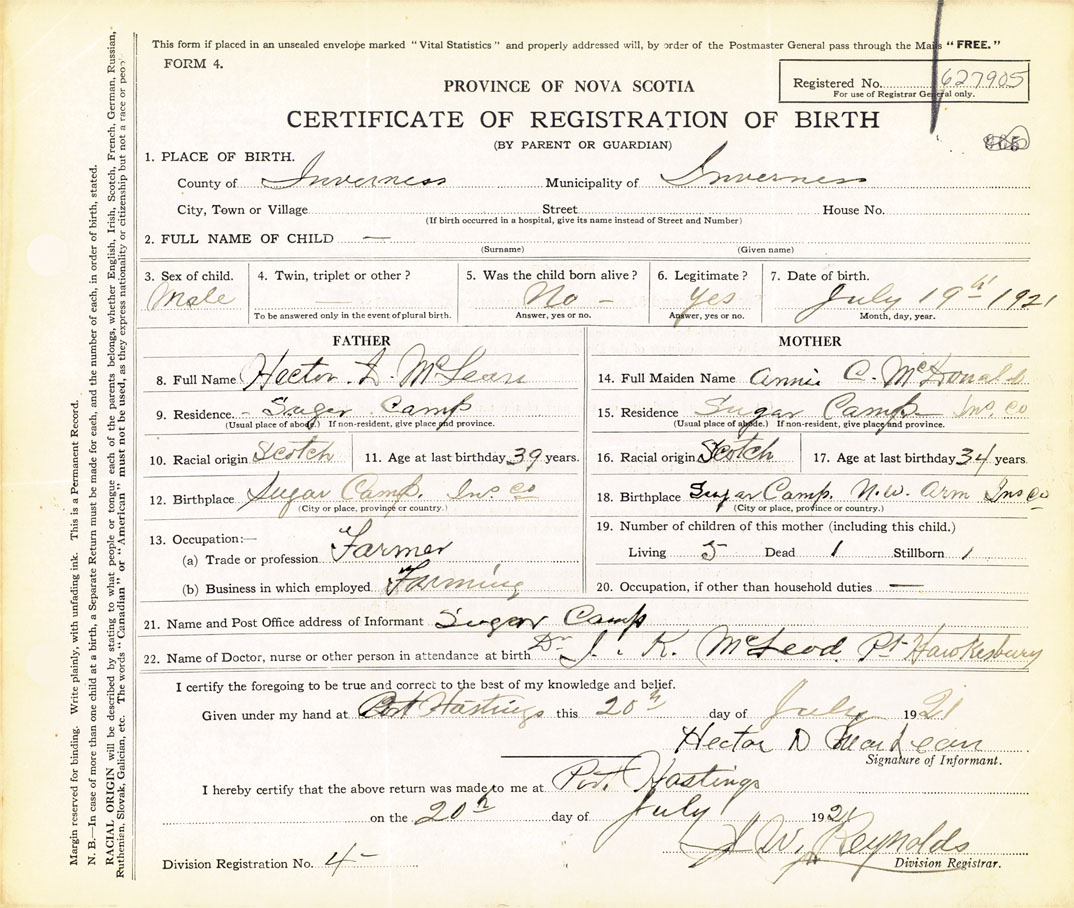 This form if placed in an unsealed envelope marked "Vital Statistics" and properly addressed will, by order of the Postmaster General pass through the Mails "FREE."
FORM 4.
Registered No. 627905
For use of Registrar General only.
PROVINCE OF NOVA SCOTIA
CERTIFICATE OF REGISTRATION OF BIRTH
(BY PARENT OR GUARDIAN)
1. PLACE OF BIRTH.
County of Inverness Municipality of Inverness
City, Town or Village Street House No.
(If birth occurred in a hospital, give its name instead of Street and Number)
2. FULL NAME OF CHILD —
(Surname) (Given name)
3. Sex of child. 4. Twin, triplet or other? 5. Was the child born alive? 6. Legitimate? 7. Date of birth.
Male — No - Yes July 19th 1921
To be answered only in the event of plural birth. Answer, yes or no. Answer, yes or no. Month, day, year.
FATHER
8. Full Name Hector D McLean
9. Residence. - Suger Camp
(Usual place of abode.) If non-resident, give place and province.
10. Racial origin Scotch 11. Age at last birthday 39 years.
12. Birthplace Sugar Camp. Inv. co
(City or place, province or country.)
13. Occupation:—
(a) Trade or profession Farmer
(b) Business in which employed Farming
MOTHER
14. Full Maiden Name Annie C. McDonald
15. Residence Sugar Camp Inv. co
(Usual place of abode.) If non-resident, give place and province.
16. Racial origin Scotch 17. Age at last birthday 34 years.
18. Birthplace Sugar Camp. N.W. Arm Inv co
(City or place, province or country.)
19. Number of children of this mother (including this child.)
Living 5 Dead 1 Stillborn 1
20. Occupation, if other than household duties —
21. Name and Post Office address of Informant Sugar Camp
22. Name of Doctor, nurse or other person in attendance at birth Dr J. K. McLeod Pt Hawkesbury
I certify the foregoing to be true and correct to the best of my knowledge and belief.
Given under my hand at Port Hastings this 20th day of July 1921
Hector D MacLean
Signature of Informant.
I hereby certify that the above return was made to me at Port Hastings
on the 20th day of July 1921
J W Reynolds
Division Registrar.
Division Registration No. 4-
Margin reserved for binding. Write plainly, with unfading ink. This is a Permanent Record.
N. B.—In case of more than one child at a birth, a Separate Return must be made for each, and the number of each, in order of birth, stated.
RACIAL ORIGIN will be described by stating to what people or tongue each of the parents belongs, whether English, Irish, Scotch, French, German, Russian,
Ruthenian, Slovak, Galician, etc. The words "Canadian" or "American" must not be used, as they express nationality or citizenship but not a race or people